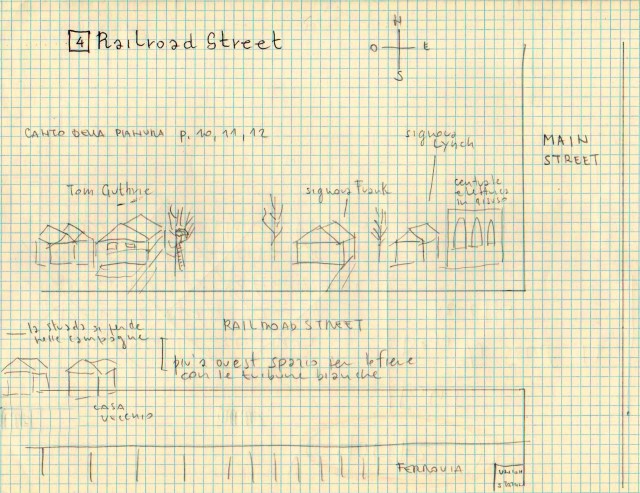 4 Railroad Street
N
O E
S
CANTO DELLA PIANURA p. 10, 11, 12
signora
Lynch
MAIN
STREET
Tom Guthrie
signora Frank
centrale
elettrica
in disuso
la strada si perde
nelle campagne
RAILROAD STREET
più a ovest spazio per le fiere
con le tribune bianche
CASA
VECCHIO
FERROVIA
UNION